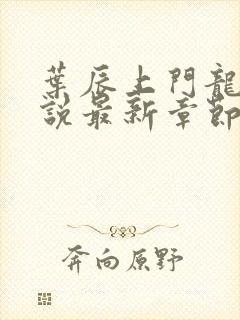 葉辰上門龍
説最新章節
奔向原野